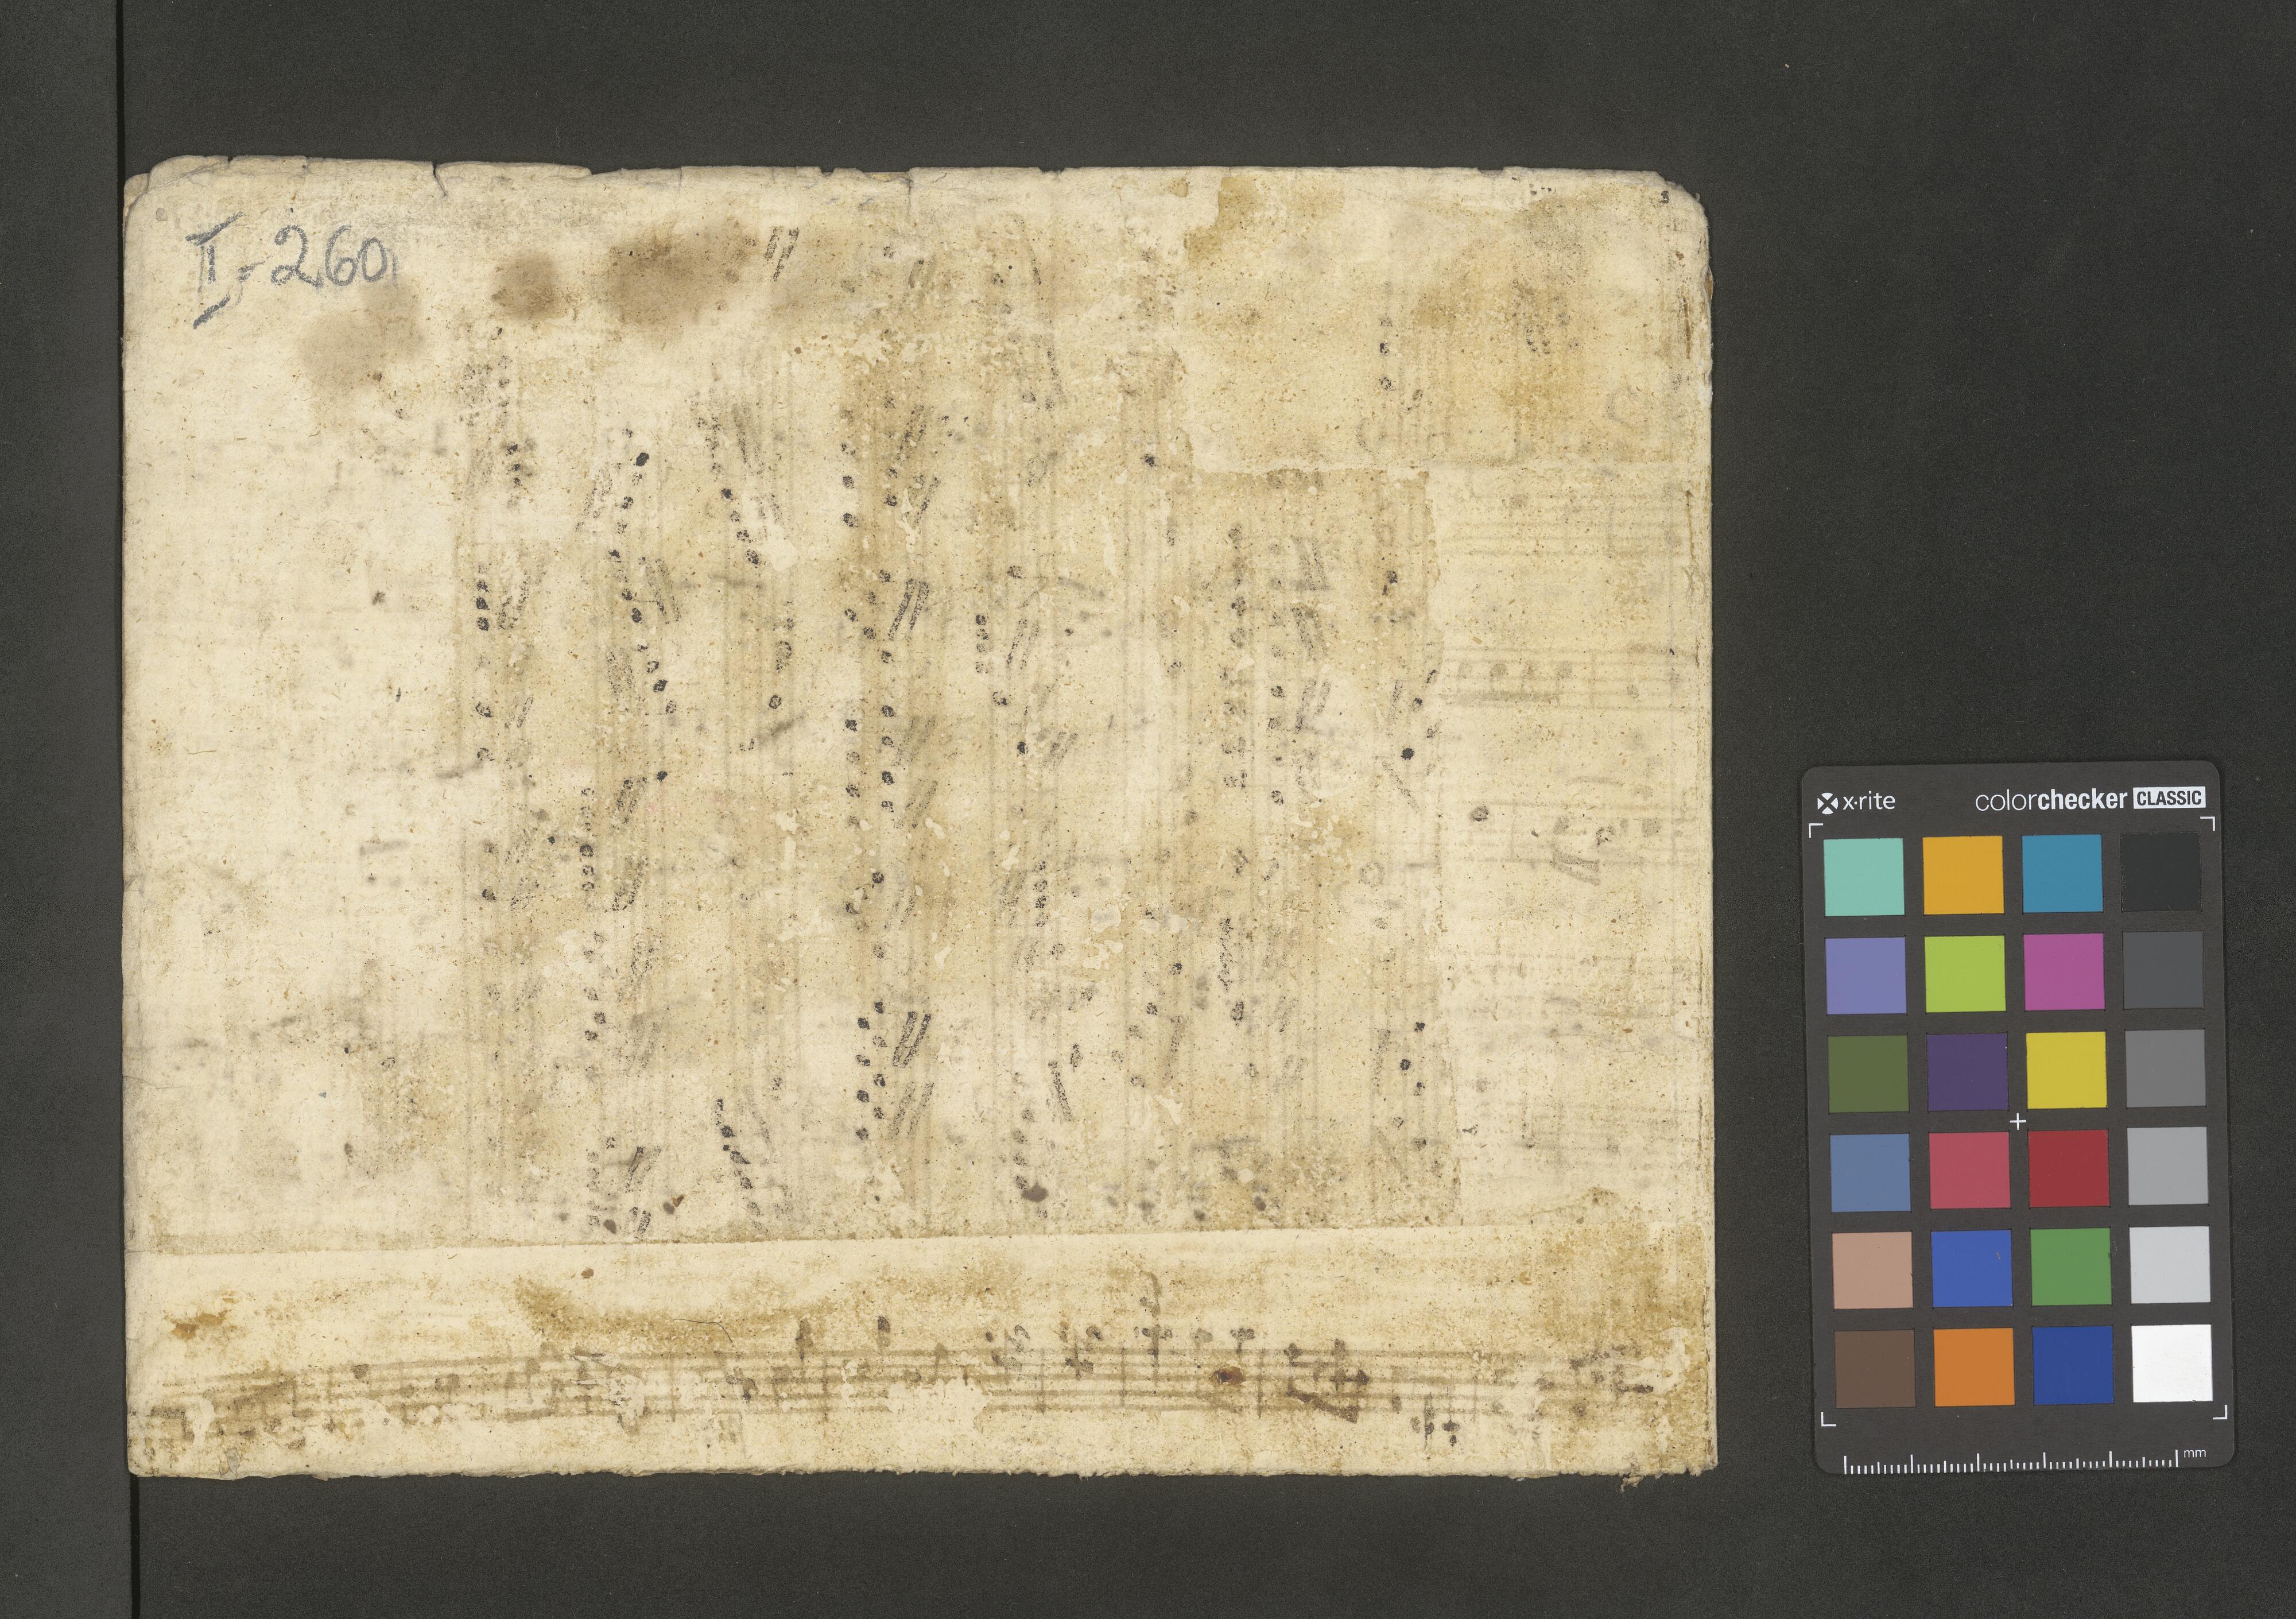 I-260
x·rite colorchecker CLASSIC
mm